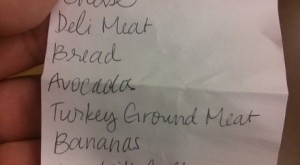 Deli Meat
Bread
Avocados
Turkey Ground Meat
Bananas